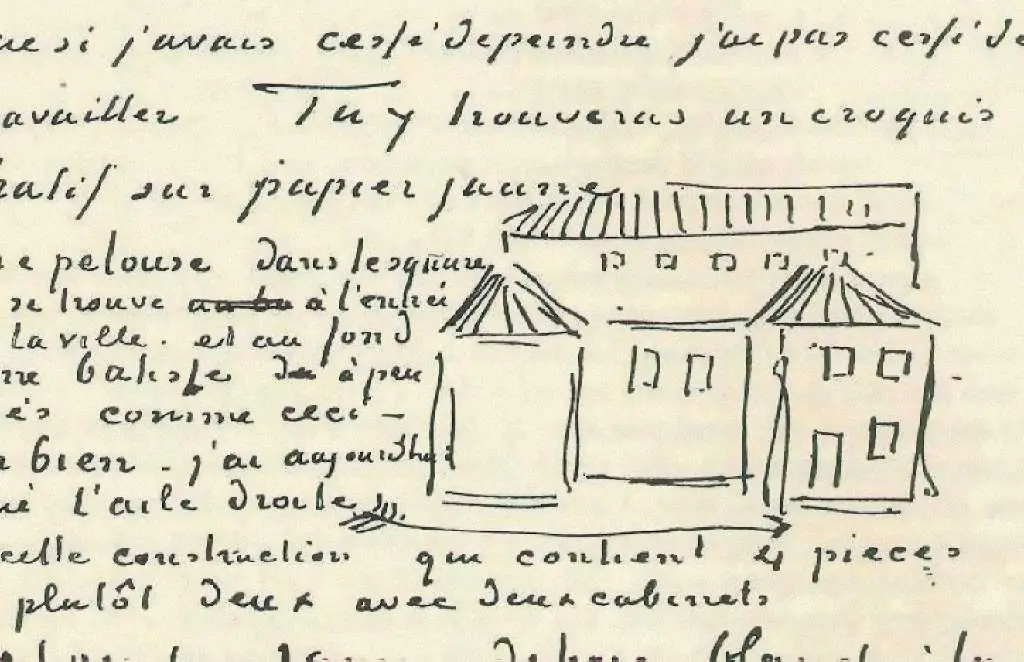 si j'avais cessé de peindre j'ai pas cessé de
availler Tu y trouveras un croquis
ratif sur papier jaune
pelouse dans le square
se trouve à l'entrée
la ville. et au fond
batisse du à peu
ès comme ceci -
bien. j'ai aujourdhui
l'aile droite
cette construction que contient 4 pieces
plutôt deux avec deux cabinets